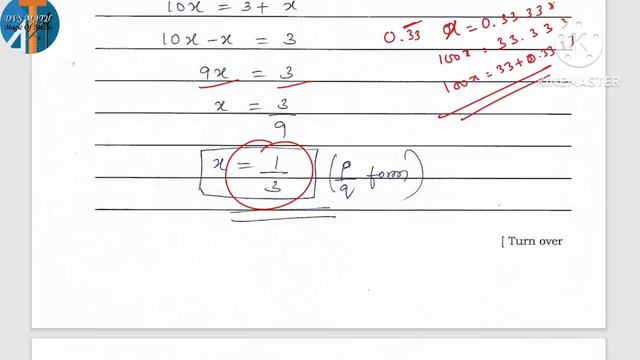 DVS MATH
Magic Of Maths
10x = 3 + x
10x - x = 3
9x = 3
x = 3/9
x = 1/3 (p/q form)
0.33 x = 0.3333
100x = 33.33
100x = 33 + 0.33
KINEMASTER
[ Turn over